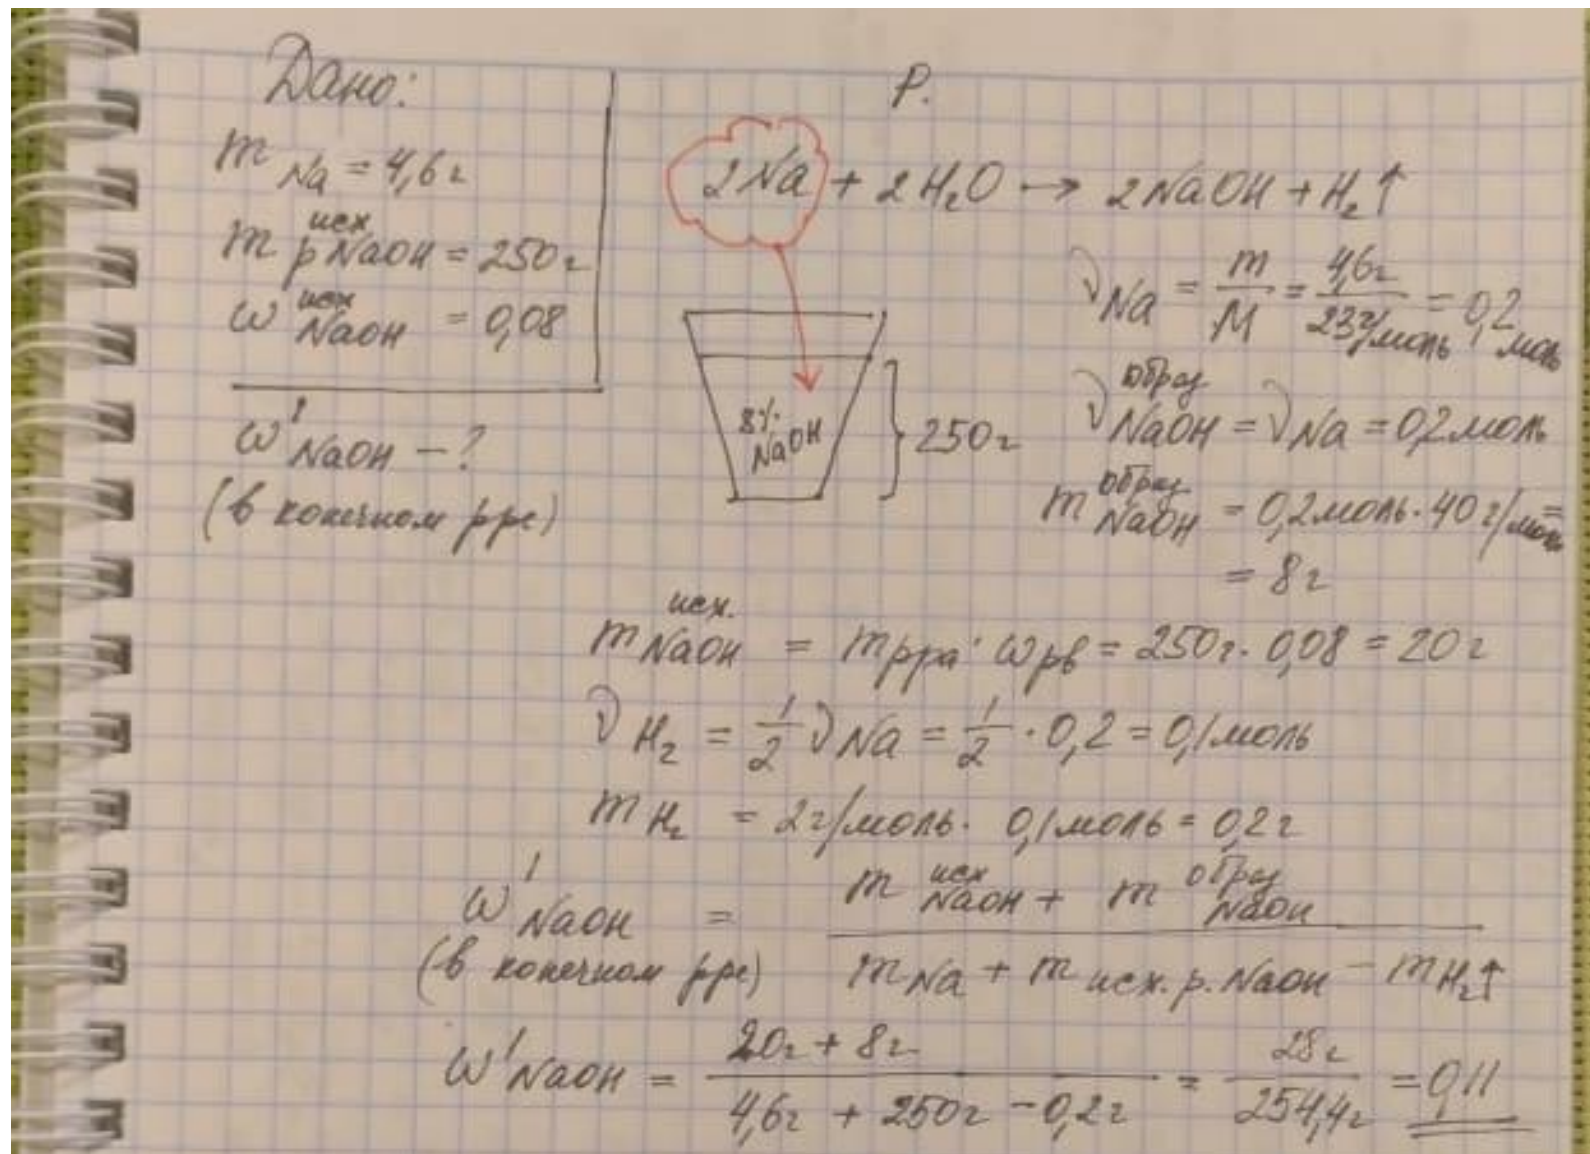 Дано:
m Na = 4,6 г
m исх р NaOH = 250 г
ω исх NaOH = 0,08
ω' NaOH – ?
(в конечном рре)
Р.
2Na + 2H₂O → 2NaOH + H₂↑
ν Na = m/M = 4,6г/23г/моль = 0,2 моль
8% NaOH
250г
ν образ NaOH = ν Na = 0,2 моль
m образ NaOH = 0,2 моль · 40 г/моль =
= 8 г
m исх. NaOH = m рра · ω рв = 250 г · 0,08 = 20 г
ν H₂ = 1/2 ν Na = 1/2 · 0,2 = 0,1 моль
m H₂ = 2 г/моль · 0,1 моль = 0,2 г
ω' NaOH (в конечном рре) = (m исх NaOH + m образ NaOH) / (m Na + m исх. р. NaOH – m H₂↑)
ω' NaOH = (20г + 8г) / (4,6г + 250г – 0,2г) = 28г / 254,4г = 0,11